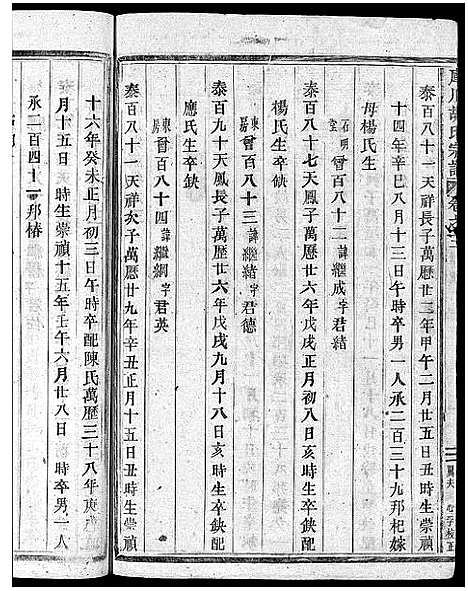 泰百八十一天祥長子萬曆廿三年甲午二月廿五日丑時生崇禎
十四年辛巳八月十三日午時卒男一人承二百三十九邦杞嫁
母楊氏生
石明堂 曾百八十二 諱繼成字君緒
泰百八十七天鳳子萬歷廿六年戊戌正月初八日亥時生卒缺配
楊氏生卒缺
東房 曾百八十三 諱繼緒字君德
泰百九十天鳳長子萬歷廿六年戊戌九月十八日亥時生卒缺配
應氏生卒缺
東房 曾百八十四 諱繼綱字君英
泰百八十一天祥次子萬曆廿九年辛丑正月十五日丑時生崇禎
十六年癸未正月初三日午時卒配陳氏萬歷三十八年庚
月十五日 時生崇禎十五年壬午六月廿八日 時卒男一人
承二百四十一邦椿